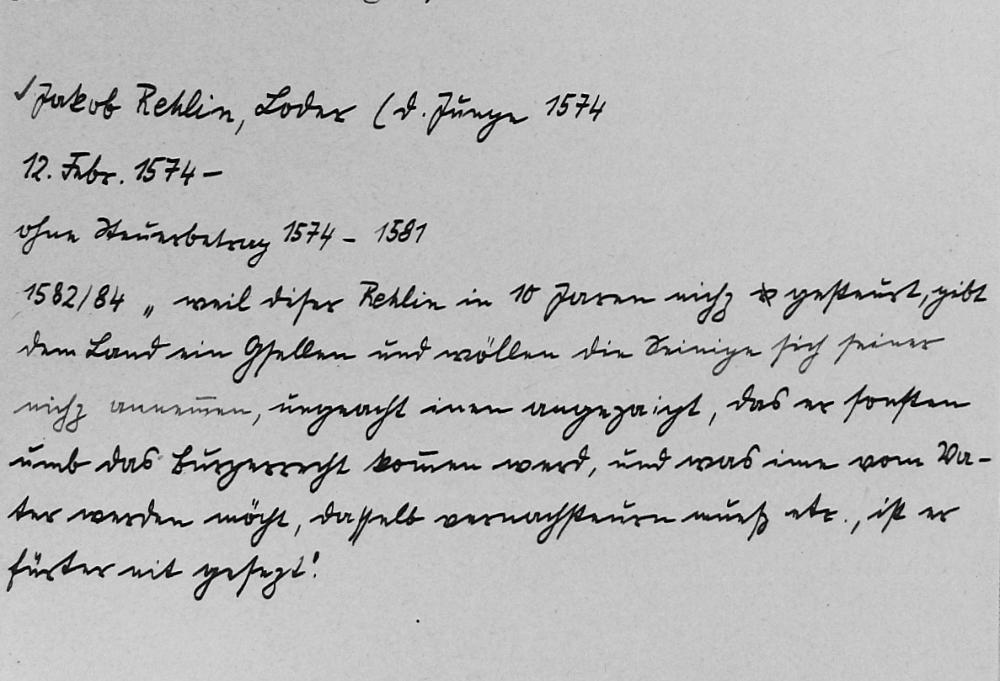 ✓ Jakob Rehlin, Loder (d. Junge 1574
12. Febr. 1574 –
ohne Steuerbetrag 1574 – 1581
1582/84 „ weil diser Rehlin in 10 Jaren nichz gesteurt, gibt
dem Land ein Gsellen und wöllen die Seinige sich seiner
nichz annemen, ungeacht inen angezaigt, das er sonsten
umb das Burgerrecht komen werd, und was ime vom Va-
ter werden möcht, dasselb vernachsteurn mueß etc., ist er
fürter nit gesezt."